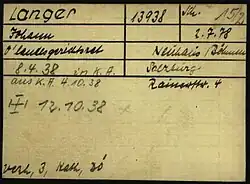 Langer 13938 Sch. 15/
Johann 2.7.78
Landesgerichtsrat Neuhaus/Böhmen
8.4.38 in K.A. Salzburg
aus K.A. 4.10.38 Rainerstr. 4
12.10.38
verh, 3, Kath,